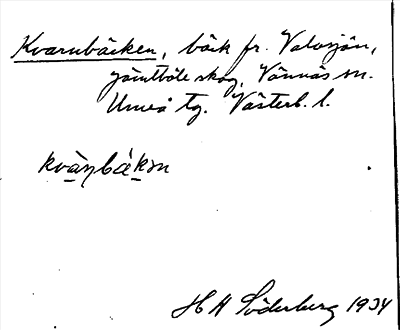 Kvarnbäcken, bäck fr. Valasjön,
jämtböle skog, Vännäs sn.
Umeå tg. Västerb. l.
kvàṇbä̀kən
H H Söderberg 1934